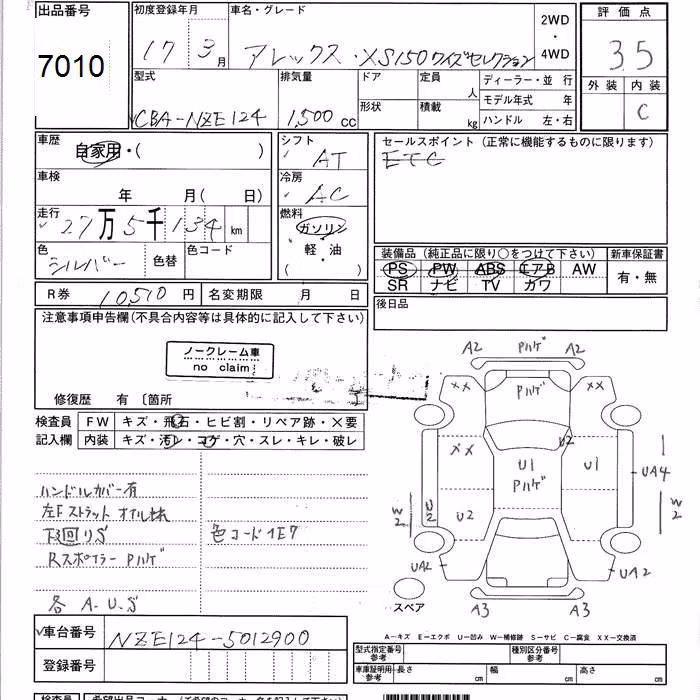 出品番号 初度登録年月 車名・グレード 2WD 評価点
7010 17 3月 アレックス・XS150ワイズセレクション ・ 3.5
4WD
型式 排気量 ドア 定員 人 ディーラー・並行 外装 内装
CBA-NZE124 1,500 cc 形状 積載 kg モデル年式 年 C
ハンドル 左・右
車歴 シフト セールスポイント(正常に機能するものに限ります)
自家用・( ) AT ETC
車検 冷房
年 月(日) AC
走行 燃料
27万5千134 km ガソリン
色 色コード 軽・油 装備品(純正品に限り○をつけて下さい) 新車保証書
シルバー 色替 ( ) PS PW ABS エアB AW 有・無
SR ナビ TV カワ
R券 10,510円 名変期限 月 日 後日品
注意事項申告欄(不具合内容等は具体的に記入して下さい)
ノークレーム車
no claim
修復歴 有 〔箇所
検査員 FW キズ・飛石・ヒビ割・リペア跡・X要
記入欄 内装 キズ・汚レ・コゲ・穴・スレ・キレ・破レ
ハンドルカバー有
左Fストラットオイルもれ
下回リS 色コード1E7
Rスポイラー Pハゲ
各 A.U.S
A2 Pハゲ A2
XX Pハゲ XX
XX U2
U1 U1 UA4
Pハゲ
W2 U2 U2 W2
UA2 UA2
スペア A3 A3
車台番号 NZE124-5012900
登録番号
A-キズ E-エクボ U-凹み W-補修跡 S-サビ C-腐食 XX-交換済
型式指定番号 参考 種別区分番号 参考
車庫証明用 参考 長さ cm 幅 cm 高さ cm